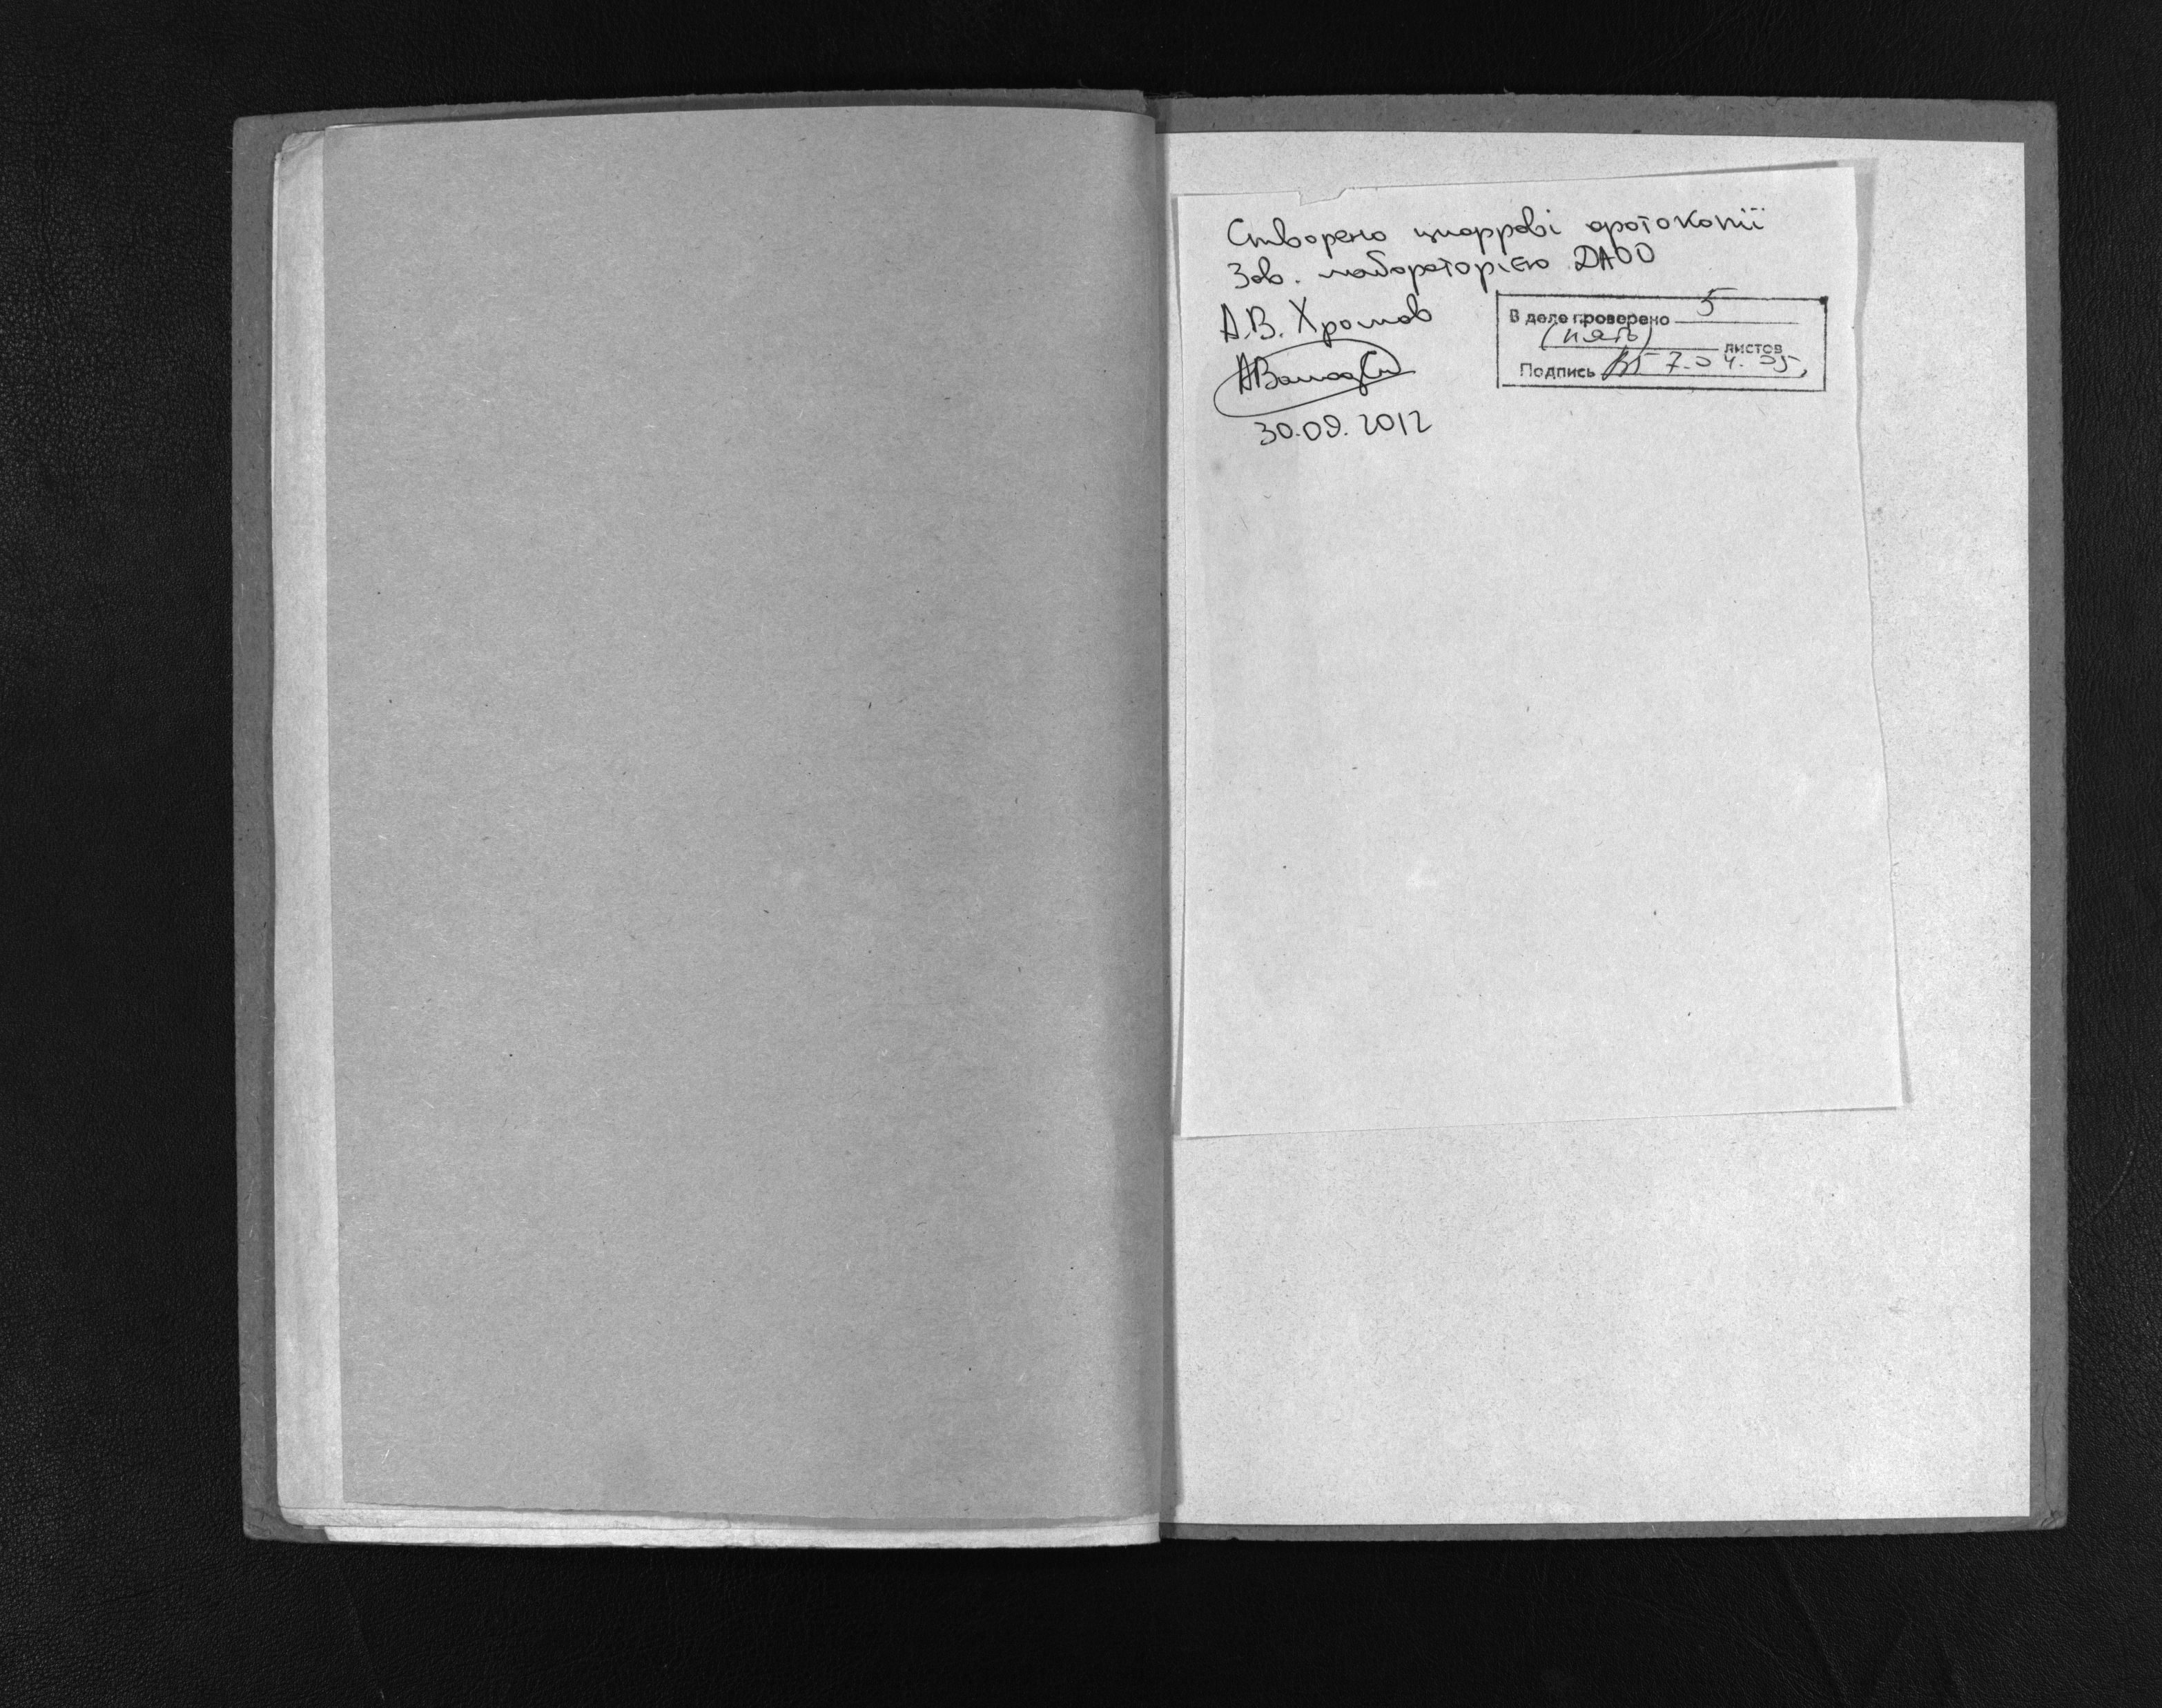 Створено цифрові фотокопії
Зав. лабораторією ДАОО
А.В. Хромов
30.09.2012
В деле проверено 5
(пять) листов
Подпись 7.04.05